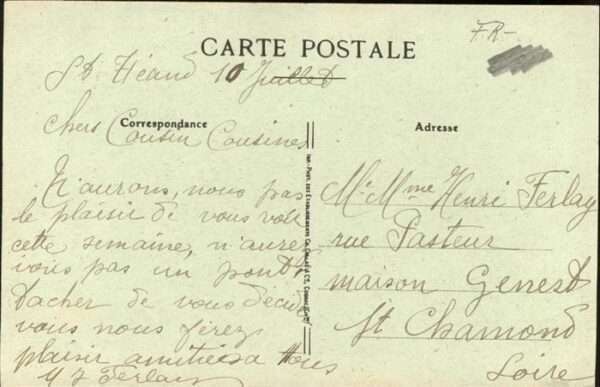 FR-
CARTE POSTALE
St Héand 10 Juillet
Correspondance
Adresse
Chers Cousin Cousines
N'aurons, nous pas
le plaisir de vous voir
cette semaine, n'aurez
vous pas un pont
tacher de vous décider
vous nous ferez
plaisir amitiés a tous
Ferlay
Mr Mme Henri Ferlay
rue Pasteur
maison Genest
St Chamond
Loire